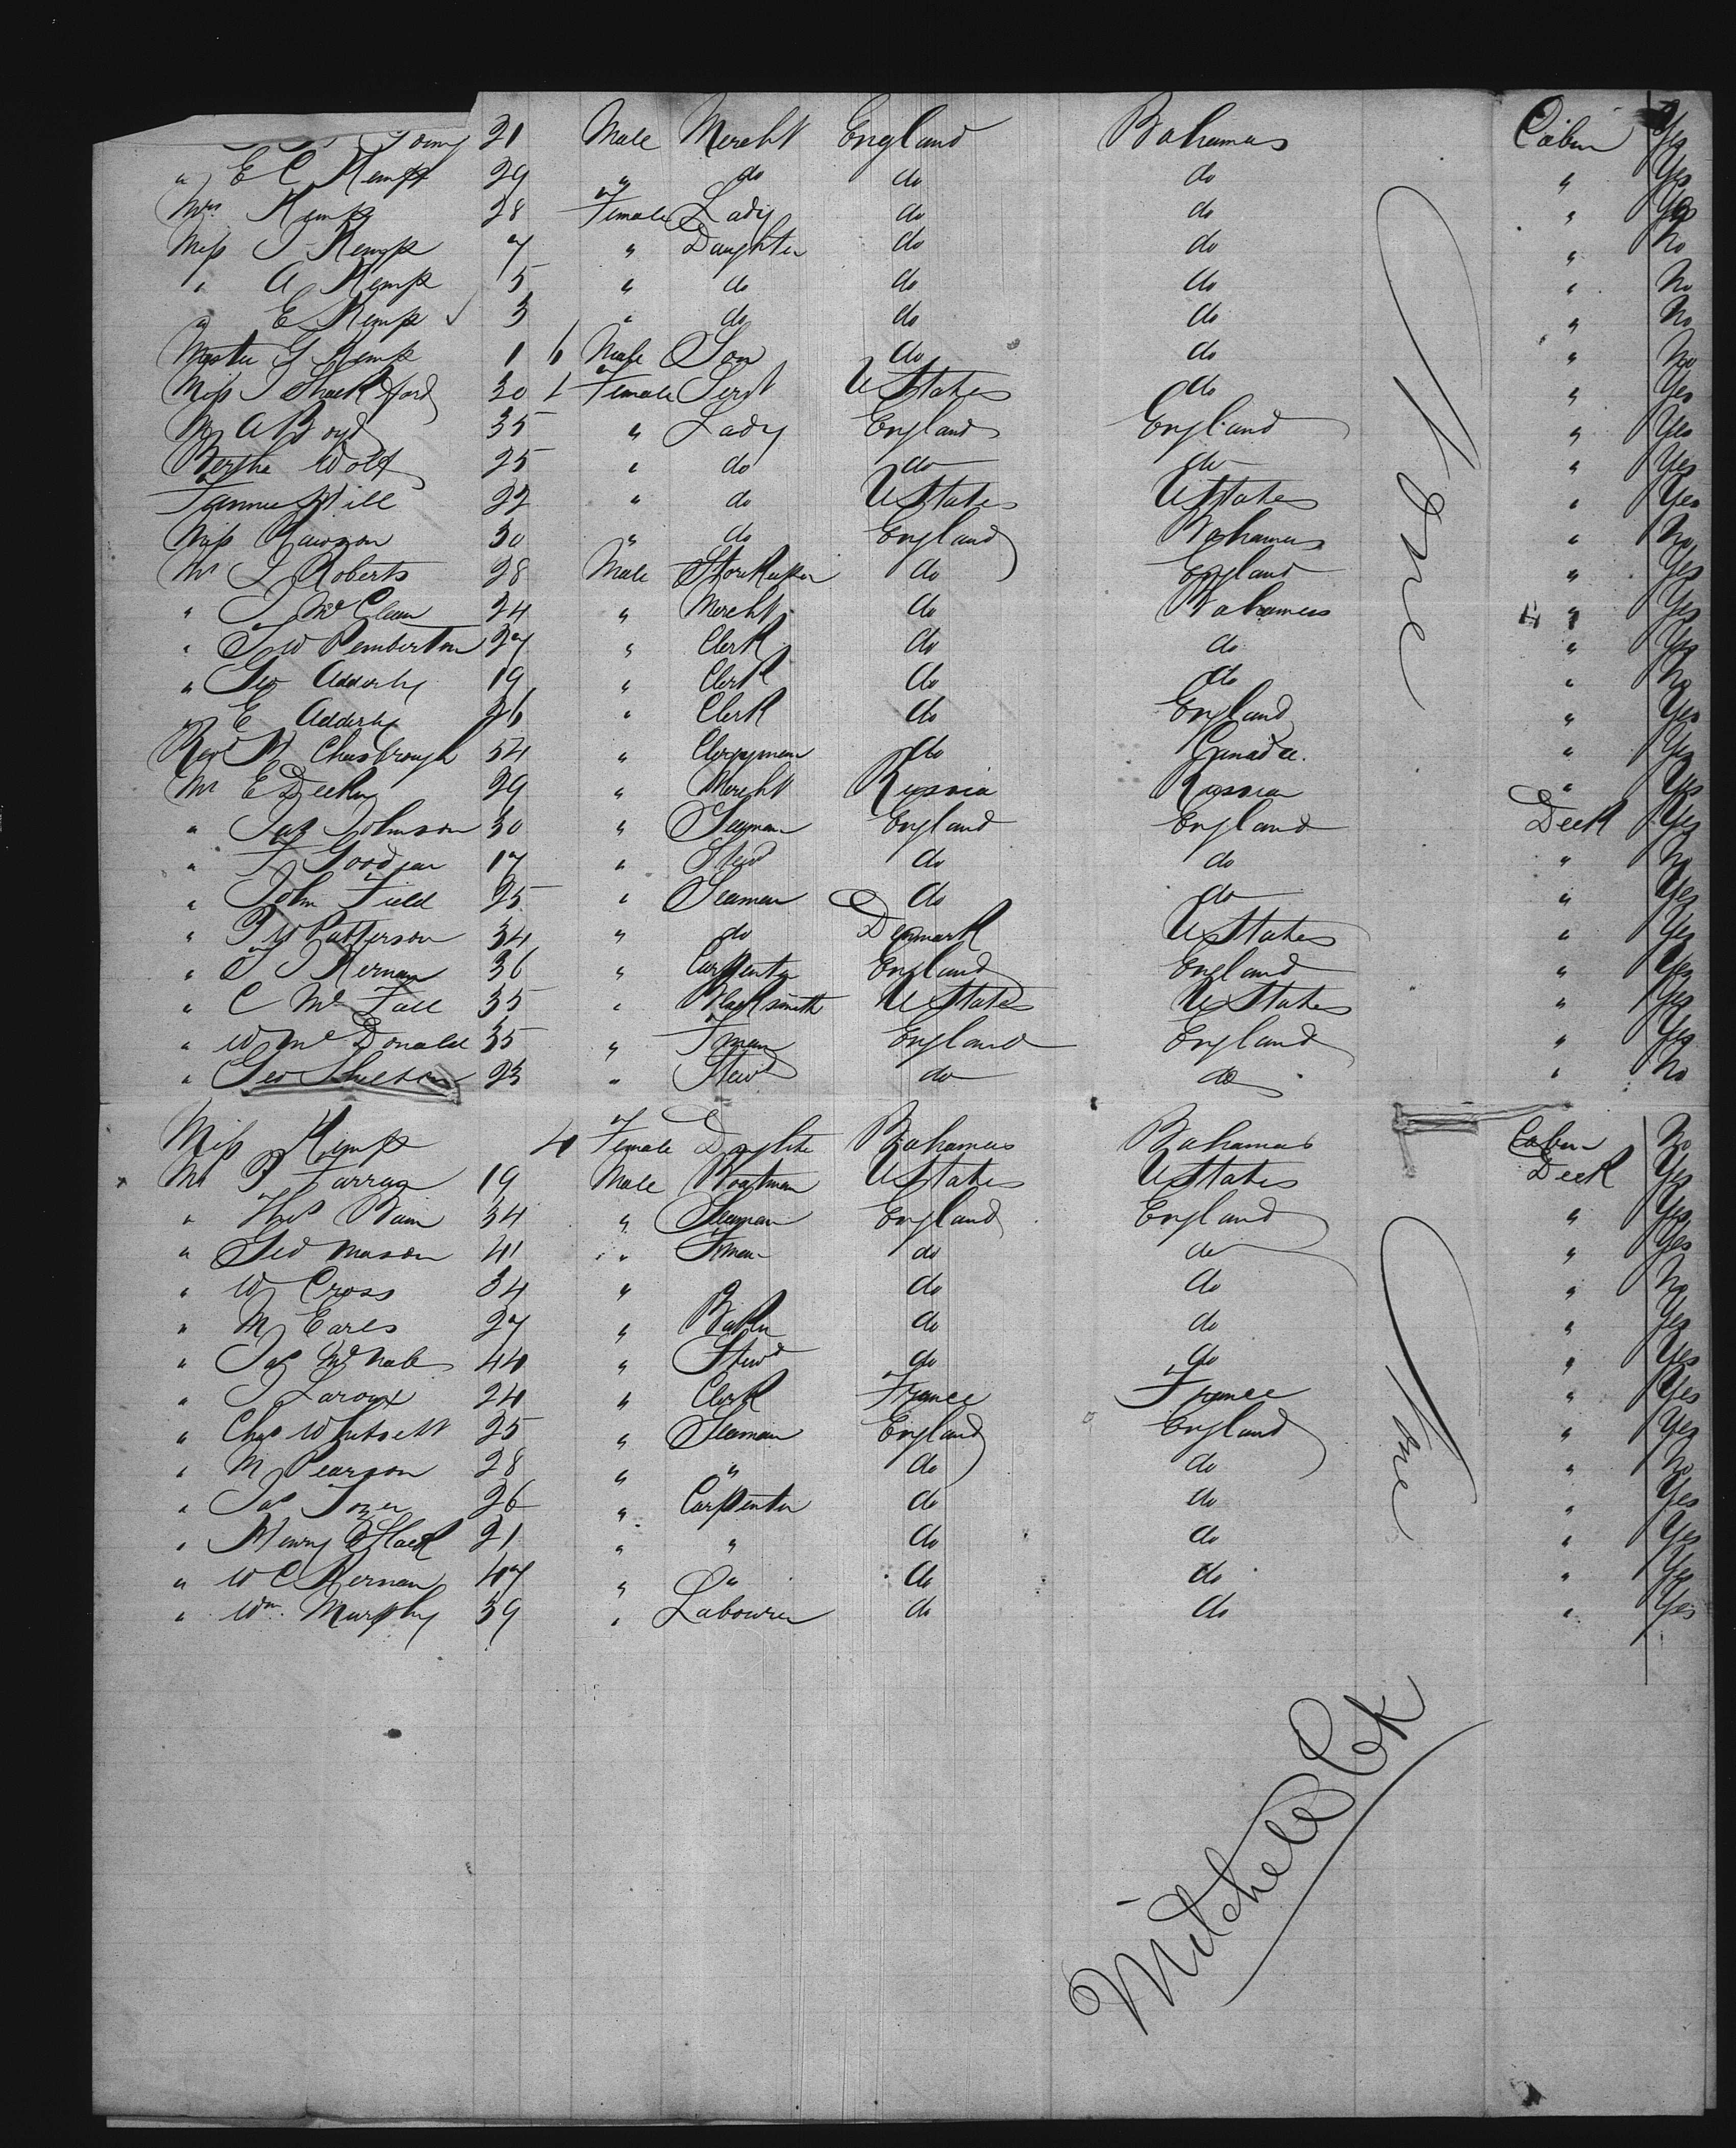 Young 21 Male Mercht England Bahamas Cabin Yes
" E C Kemp 29 " do do do " Yes
Mrs Kemp 28 Female Lady do do " Yes
Miss J Kemp 7 " Daughter do do " No
" A Kemp 5 " do do do " No
" E Kemp 3 " do do do " No
Master G Kemp 1 6 Male Son do do " No
Miss J Shackelford 30 Female Servt U States do " Yes
A Boyd 35 " Lady England England " Yes
Bertha Wolf 25 " do do do " Yes
Fannie Will 22 " do U States U States " Yes
Miss Rawson 30 " do England Bahamas " No
Mr L Roberts 28 Male Storekeeper do England " Yes
" J McClean 24 " Mercht do Bahamas " Yes
" J W Pemberton 27 " Clerk do do " Yes
" Geo Adderly 19 " Clerk do do " No
" E Adderly 26 " Clerk do England " Yes
Revd M Chesbrough 54 " Clergyman do Canada. " Yes
Mr E Decker 29 " Mercht Russia Russia " Yes
" Jas Johnson 30 " Seaman England England Deck Yes
" F Goodjear 17 " Stewd do do " No
" John Field 25 " Seaman do do " Yes
" P W Patterson 34 " do Denmark U States " Yes
" J J Kernan 36 " Carpenter England England " Yes
" C McFall 35 " Blacksmith U States U States " Yes
" W McDonald 35 " Fman England England " Yes
" Geo 23 " Stewd do do " No
Miss Kemp 4 Female Daghter Bahamas Bahamas Cabin No
Mr P Farrag 19 Male Boatman U States U States Deck Yes
" Thos Bain 34 " Seaman England England " Yes
" Geo Mason 41 " Fman do do " Yes
" W Cross 34 " " do do " No
" M Earls 27 " Baker do do " Yes
" Jas McNab 44 " Stewd do do " Yes
" J Laroux 24 " Clerk France France " Yes
" Chas Whitsett 25 " Seaman England England " Yes
" M Pearson 28 " " do do " No
" Jas Tozer 26 " Carpenter do do " Yes
" Henry Black 21 " " do do " Yes
" W C Kernan 47 " " do do " Yes
" Wm. Murphy 39 " Labourer do do " Yes
None
None
Mitchell Clk